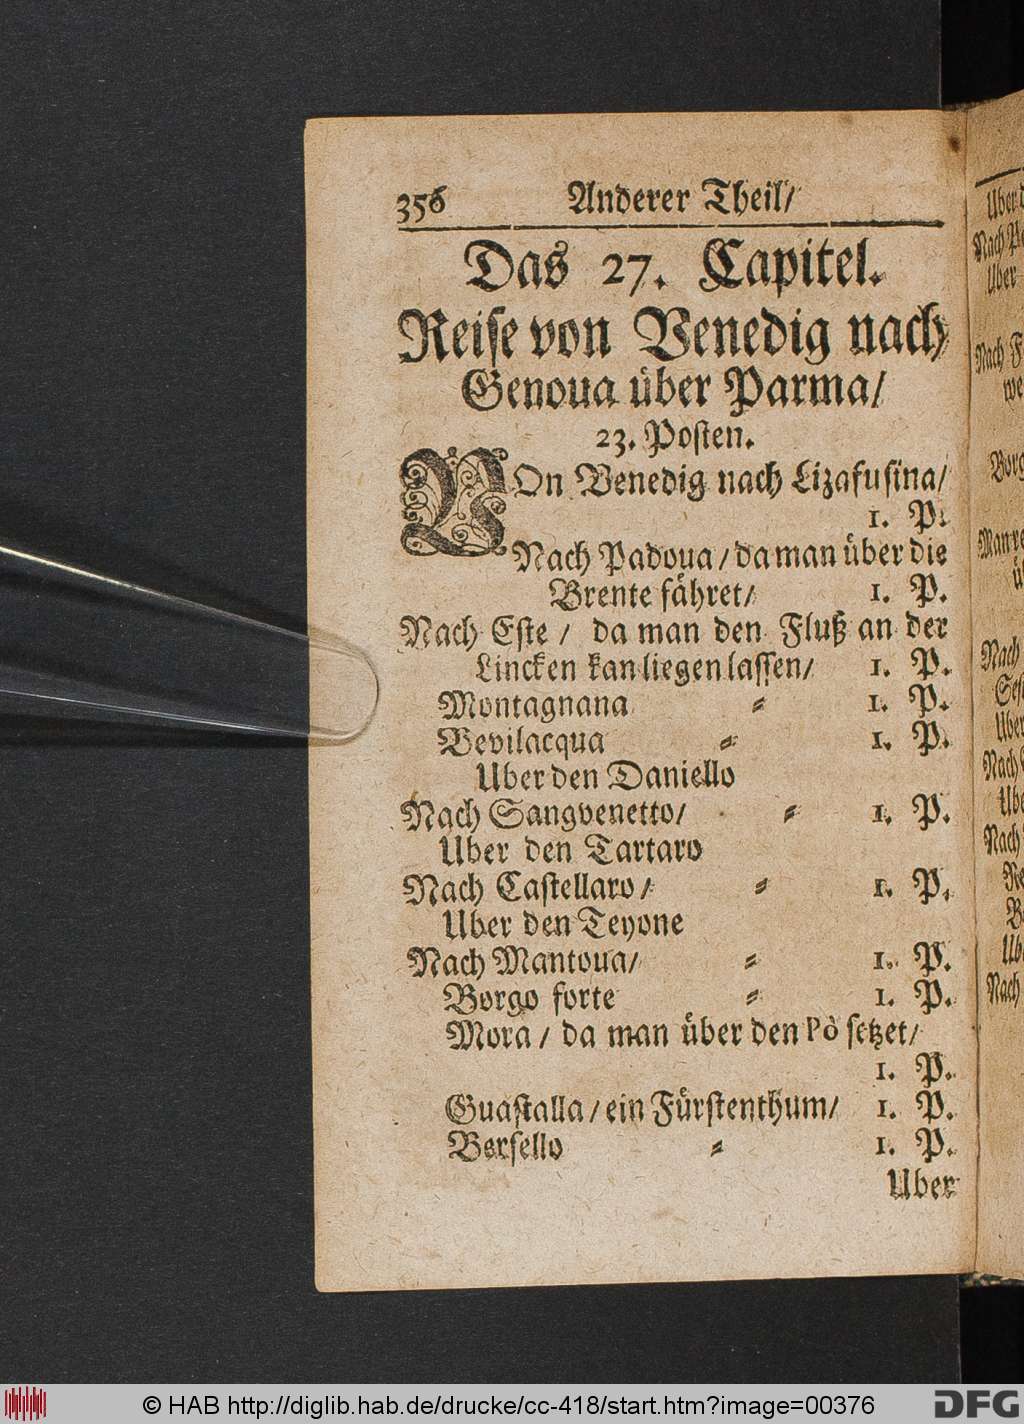 356 Anderer Theil/
Das 27. Capitel.
Reise von Venedig nach
Genoua über Parma/
23. Posten.
VOn Venedig nach Lizafusina/
1. P.
Nach Padoua/ da man über die
Brente fähret/ 1. P.
Nach Este / da man den Fluß an der
Lincken kan liegen lassen/ 1. P.
Montagnana = 1. P.
Bevilacqua = 1. P.
Uber den Daniello
Nach Sangvenetto/ = 1. P.
Uber den Tartaro
Nach Castellaro/ = 1. P.
Uber den Teyone
Nach Mantoua/ = 1. P.
Borgo forte = 1. P.
Mora / da man über den Pò setzet/
1. P.
Guastalla / ein Fürstenthum/ 1. P.
Bersello = 1. P.
Uber
© HAB http://diglib.hab.de/drucke/cc-418/start.htm?image=00376
DFG
Nach
Uber
Nach
Uber
Nach
Nach